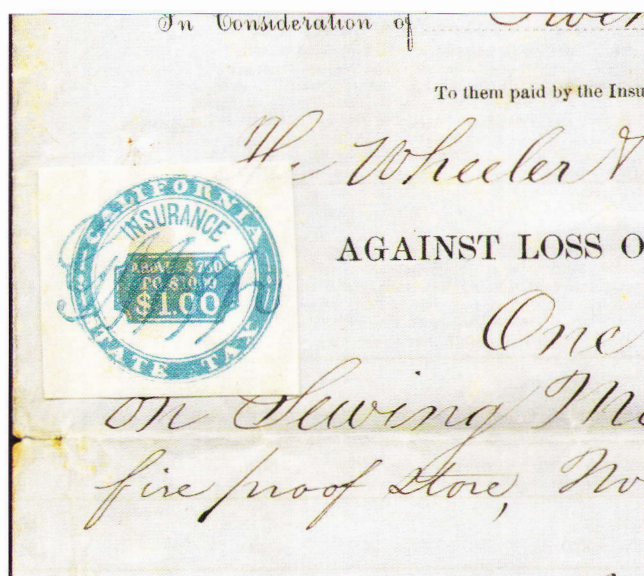 In Consideration of
To them paid by the Insu
The Wheeler &
CALIFORNIA
INSURANCE
ABOVE $750
TO $1000
$1.00
STATE TAX
AGAINST LOSS O
One
on Sewing Ma
fire proof Store, No